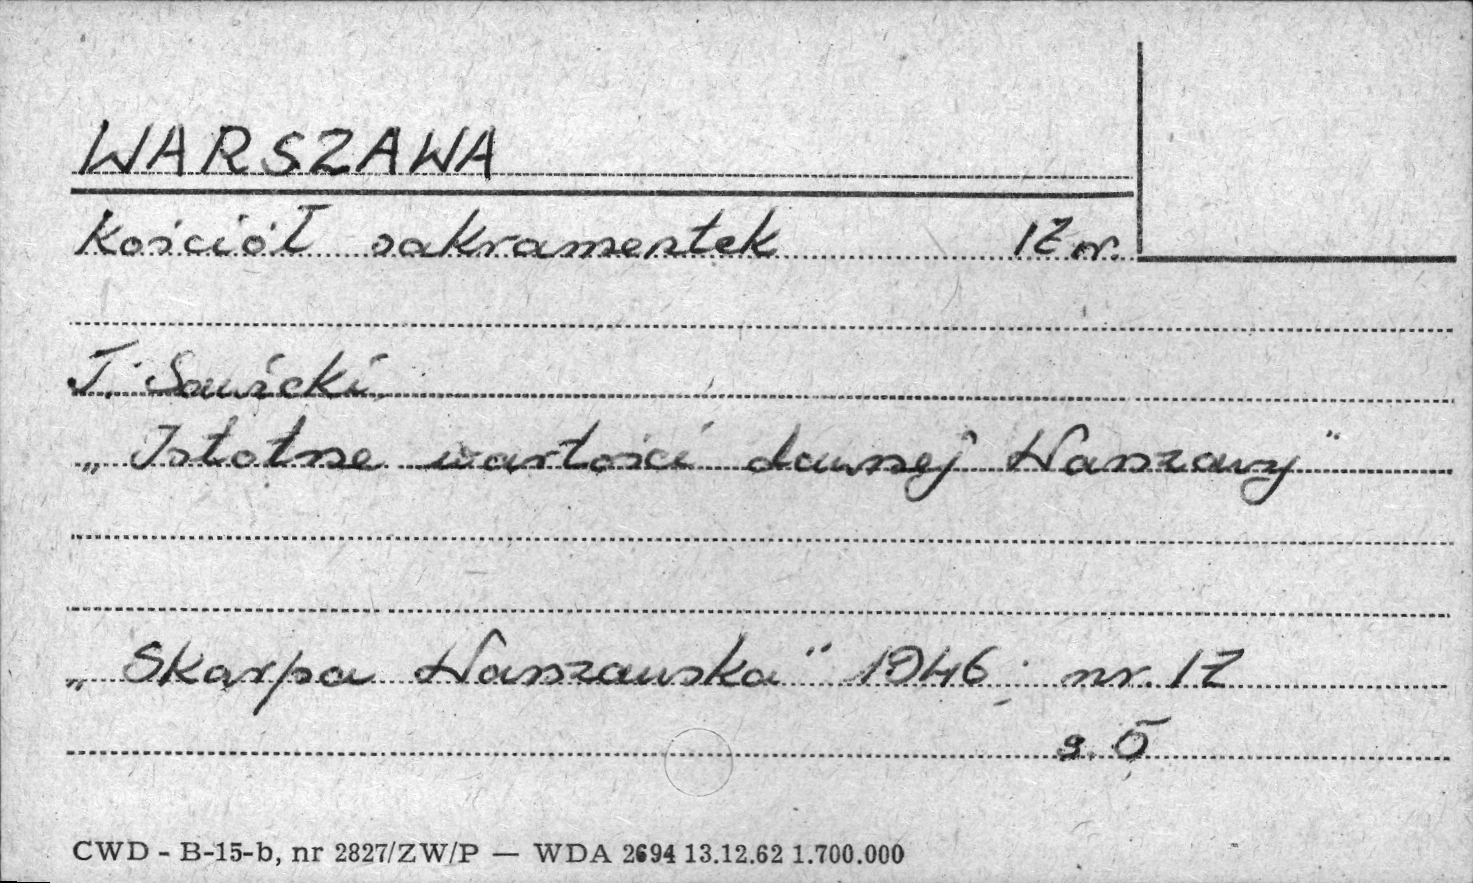 WARSZAWA
Kościół sakramentek 1Z nr.
T. Sawicki
„Istotne wartości dawnej Warszawy"
„Skarpa Warszawska" 1946 nr. 1Z
s. 5
CWD - B-15-b, nr 2827/ZW/P — WDA 2694 13.12.62 1.700.000